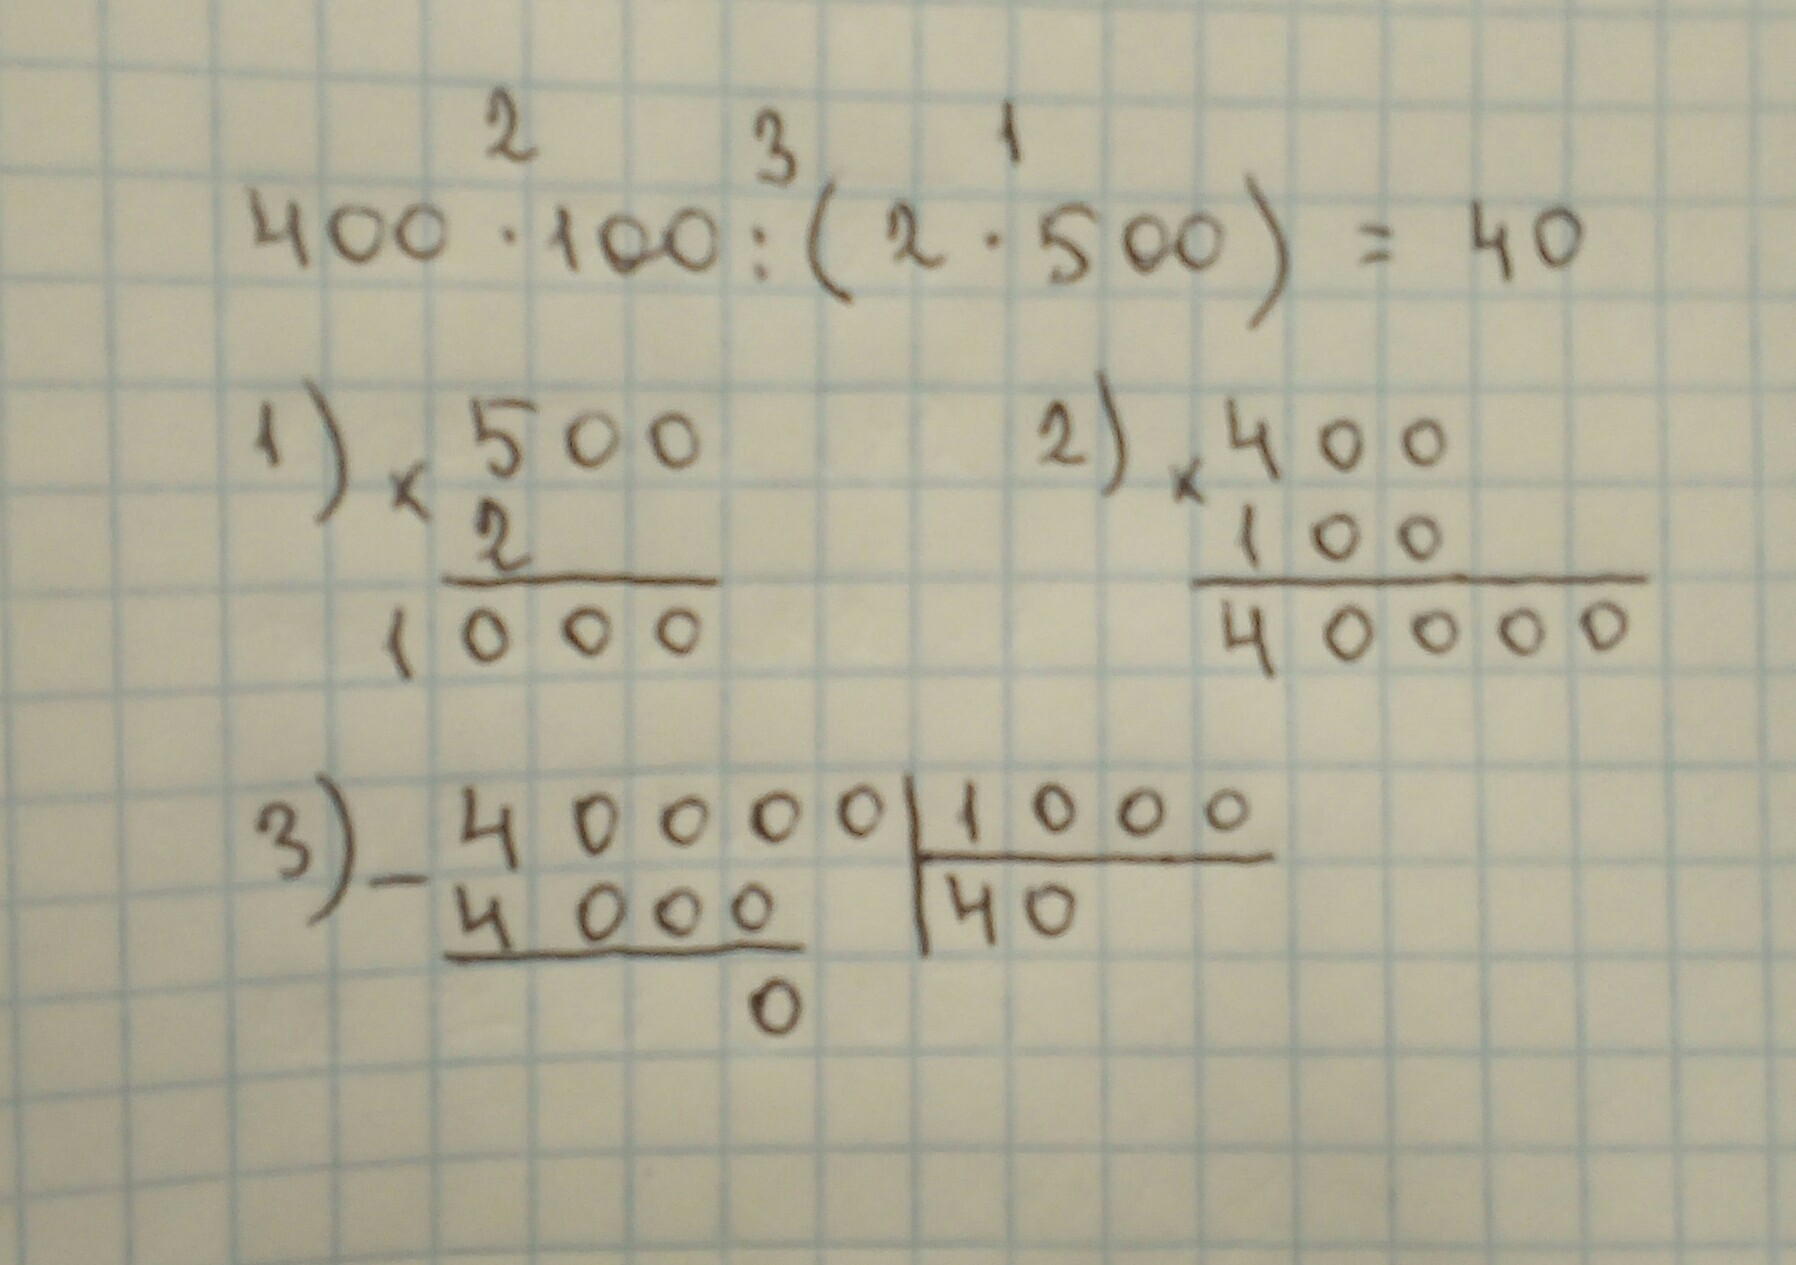 2 3 1
400 · 100 : ( 2 · 500 ) = 40
1) × 500 2) × 400
2 100
1000 40000
3) - 40000 | 1000
4000 | 40
0